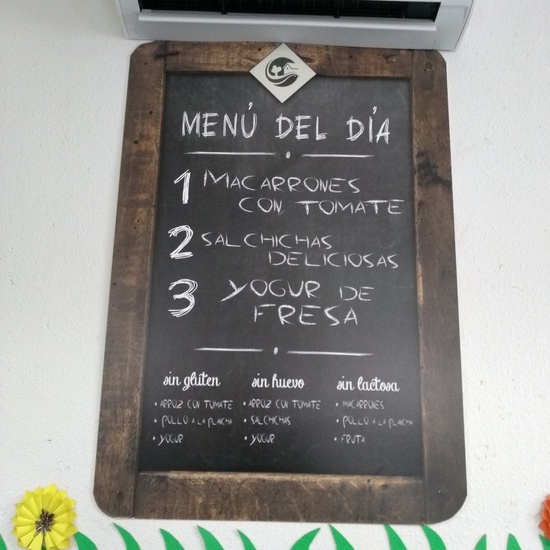 MENÚ DEL DÍA
1 MACARRONES
CON TOMATE
2 SALCHICHAS
DELICIOSAS
3 YOGUR DE
FRESA
sin gluten
• ARROZ CON TOMATE
• POLLO A LA PLANCHA
• YOGUR
sin huevo
• ARROZ CON TOMATE
• SALCHICHAS
• YOGUR
sin lactosa
• MACARRONES
• POLLO A LA PLANCHA
• FRUTA